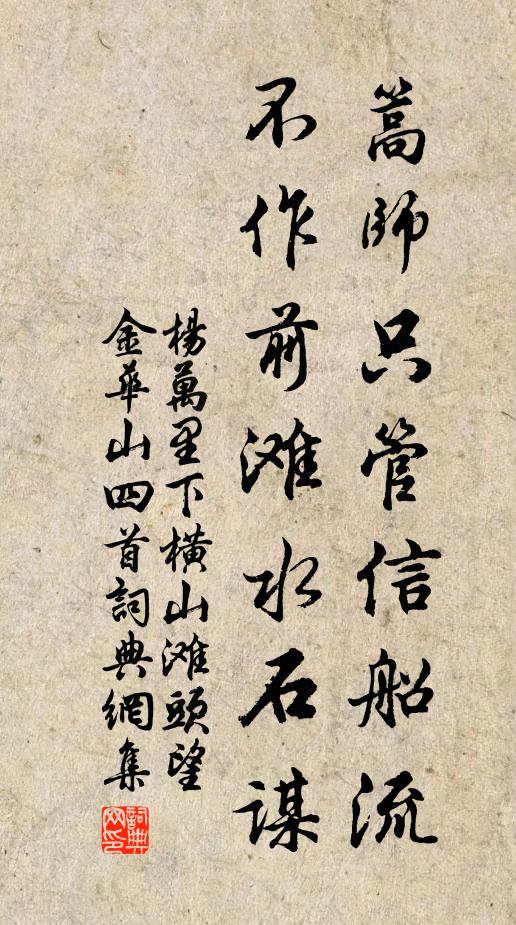 篙師只管信船流
不作前滩水石謀
楊萬里下橫山滩頭望
金華山四首詞典網集
詞典
网印